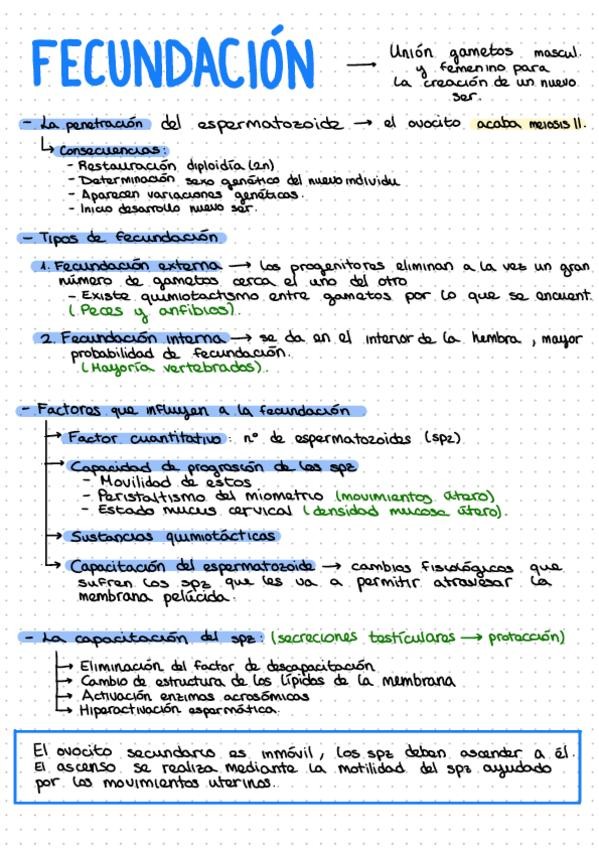 FECUNDACIÓN → Unión gametos mascul.
y femenino para
la creación de un nuevo
ser.
- La penetración del espermatozoide → el ovocito acaba meiosis II.
↳ Consecuencias:
- Restauración diploidía (2n)
- Determinación sexo genético del nuevo individu
- Aparecen variaciones genéticas.
- Inicio desarrollo nuevo ser.
- Tipos de fecundación
1. Fecundación externa → los progenitores eliminan a la vez un gran
número de gametos cerca el uno del otro
- Existe quimiotactismo entre gametos por lo que se encuent.
(Peces y anfibios).
2. Fecundación interna → se da en el interior de la hembra, mayor
probabilidad de fecundación.
(Mayoría vertebrados).
- Factores que influyen a la fecundación
→ Factor cuantitativo: nº de espermatozoides (spz)
→ Capacidad de progresión de los spz
- Movilidad de estos
- Peristaltismo del miometrio (movimientos útero)
- Estado mucus cervical (densidad mucosa útero).
→ Sustancias quimiotácticas
→ Capacitación del espermatozoide → cambios fisiológicos que
sufren los spz que les va a permitir atravesar la
membrana pelúcida.
- La capacitación del spz: (secreciones testículares → protección)
→ Eliminación del factor de descapacitación
→ Cambio de estructura de los lípidos de la membrana
→ Activación enzimas acrosómicas
→ Hiperactivación espermática.
El ovocito secundario es inmóvil, los spz deben ascender a él.
El ascenso se realiza mediante la motilidad del spz ayudado
por los movimientos uterinos.